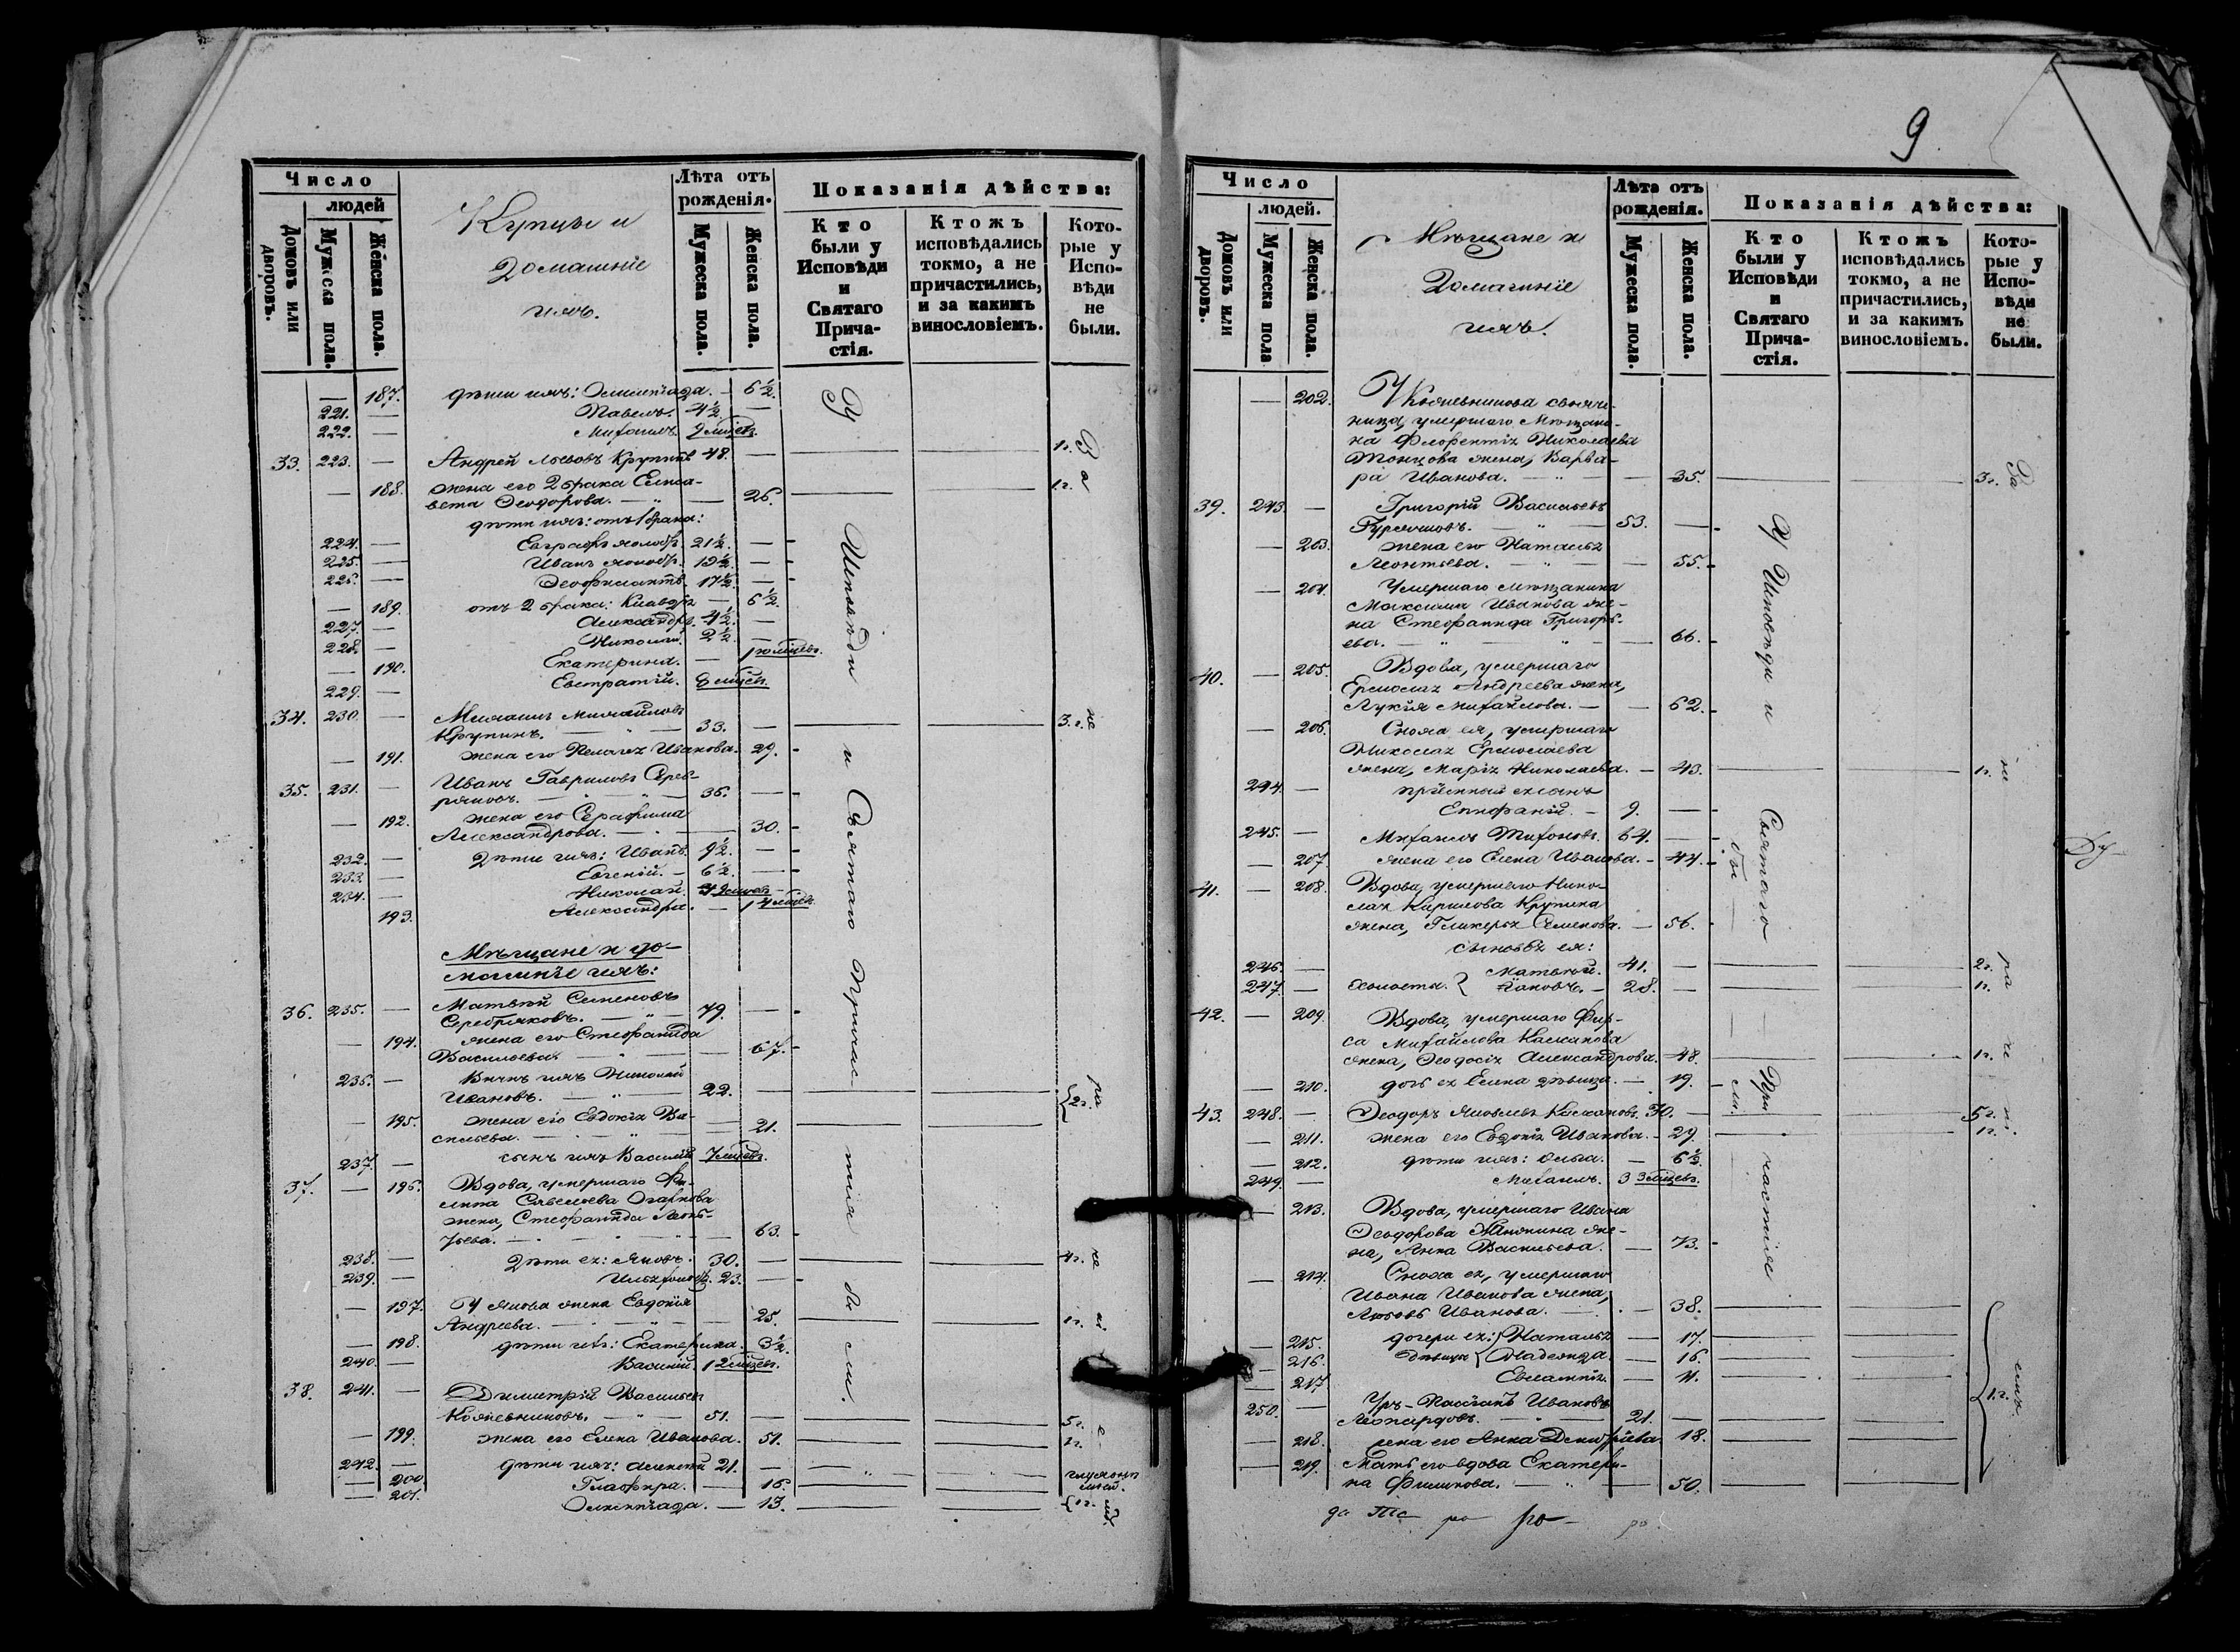 Число
людей
Домовъ или дворовъ.
Мужеска пола.
Женска пола.
Купцы и
домашніе
ихъ.
Лѣта отъ рожденія.
Мужеска пола.
Женска пола.
Показанія дѣйства:
Кто были у Исповѣди и Святаго Причастія.
Ктожъ исповѣдались токмо, а не причастились, и за какимъ винословіемъ.
Которые у Исповѣди не были.
— 187. дѣти ихъ: Олимпіада. — 6½.
221. — Павелъ. 4½. —
222. — Михаилъ. 9 мѣсяц.
33. 223. — Андрей Львовъ Крупинъ 48. — 1г.
— 188. жена его 2 брака Елиса-
вета Ѳеодорова. — 26. 1г.
дѣти ихъ: отъ 1 брака:
224. — Евграфъ холост. 21½. —
225. — Иванъ холост. 19½. —
226. — Ѳеофилактъ. 17½. —
— 189. отъ 2 брака: Клавдія — 6½.
227. — Александръ. 4½. —
228. — Николай. 2½. —
— 190. Екатерина. —
229. — Евстратій.
34. 230. — Михаилъ Михайловъ
Крупинъ. — 33. — 3.г.
— 191. жена его Пелагія Иванова. 29. -
35. 231. — Иванъ Гавриловъ Сереб-
ряковъ. — 36. —
— 192. жена его Серафима
Александрова. — 30. -
232. — дѣти ихъ: Иванъ. 9½. —
233. — Евгеній. — 6½. —
234. — Николай.
193. Александра. —
Мѣщане и до-
машніе ихъ:
36. 235. — Матвѣй Симеоновъ
Серебряковъ. — 79. —
— 194. жена его Стефанида
Васильева. — 67. -
236. — Внукъ ихъ Николай
Ивановъ. — 22. —
— 195. жена его Евдокія Ва-
сильева. — 21. 2г.
237. — сынъ ихъ Василій 7 мѣсяц.
37. — 196. Вдова, умершаго Фи-
липпа Савельева
жена, Стефанида Леон-
тьева. — 63. -
238. — дѣти ея: Яковъ. 30. — 4г.
239. — Илья холост. 23. —
— 197. У Якова жена Евдокія
Андреева. — 25. 1г.
— 198. дѣти ихъ: Екатерина. 3½.
240. — Василій. 1
38. 241. — Димитрій Васильевъ
Кожевниковъ. — 51. — 5г.
— 199. жена его Елена Иванова. 51. 1г.
242. — дѣти ихъ: Алексѣй 21. —
— 200. Глафира. — 16.
— 201. Олимпіада. — 13. 1г.
У Исповѣди и Святаго Причастія были.
9
Число
людей.
Домовъ или дворовъ.
Мужеска пола
Женска пола.
Мѣщане и
домашніе
ихъ.
Лѣта отъ рожденія.
Мужеска пола.
Женска пола.
Показанія дѣйства:
Кто были у Исповѣди и Святаго Причастія.
Ктожъ исповѣдались токмо, а не причастились, и за какимъ винословіемъ.
Которые у Исповѣди не были.
— 202. У Кожевникова своячи-
ница, умершаго мѣщани-
на Флорентія Николаева
жена, Варва-
ра Иванова. — 35. 3г.
39. 243. — Григорій Васильевъ
53. —
— 203. жена его Наталія
Леонтьева. — 55. -
— 204. Умершаго мѣщанина
Максима Иванова же-
на Стефанида Григорь-
ева. — 66. -
40. — 205. Вдова, умершаго
Ермолая Андреева жена,
Лукія Михайлова. — 62. -
— 206. Сноха ея, умершаго
Николая Ермолаева
жена, Марія Николаева. — 43. 1г.
244. — пріемный ея сынъ
Епифаній. — 9. —
245. — Михаилъ Тихоновъ. 64. —
— 207. жена его Елена Иванова. — 44. -
41. — 208. Вдова, умершаго Нико-
лая Кирилова Крупина
жена, Гликерія Семенова. — 56. -
сыновья ея:
246. — Матвѣй. 41. — 2г.
247. — холосты. Іаковъ. — 28. — 1г.
42. — 209. Вдова, умершаго Фир-
са Михайлова
жена, Ѳеодосія Александрова. 48. 1г.
— 210. дочь ея Елена дѣвица. — 19.
43. 248. — Ѳеодоръ Яковлевъ 30. — 5г.
— 211. жена его Евдокія Иванова. — 29. 1г.
— 212. дѣти ихъ: Ольга. — 6½.
249. — Михаилъ. 3
— 213. Вдова, умершаго Ивана
Ѳеодорова же-
на, Анна Васильева. — 73. -
— 214. Сноха ея, умершаго
Ивана Иванова жена,
Любовь Иванова. — 38.
— 215. дочери ея: Наталья — 17.
— 216. дѣвицы Надежда. — 16.
— 217. Евлампія. — 11.
250. — Ивановъ
21. —
— 218. жена его Анна Димитріева 18.
— 219. Мать его вдова Екатери-
на Филипова. — 50.
1г.
У Исповѣди и Святаго Причастія были.